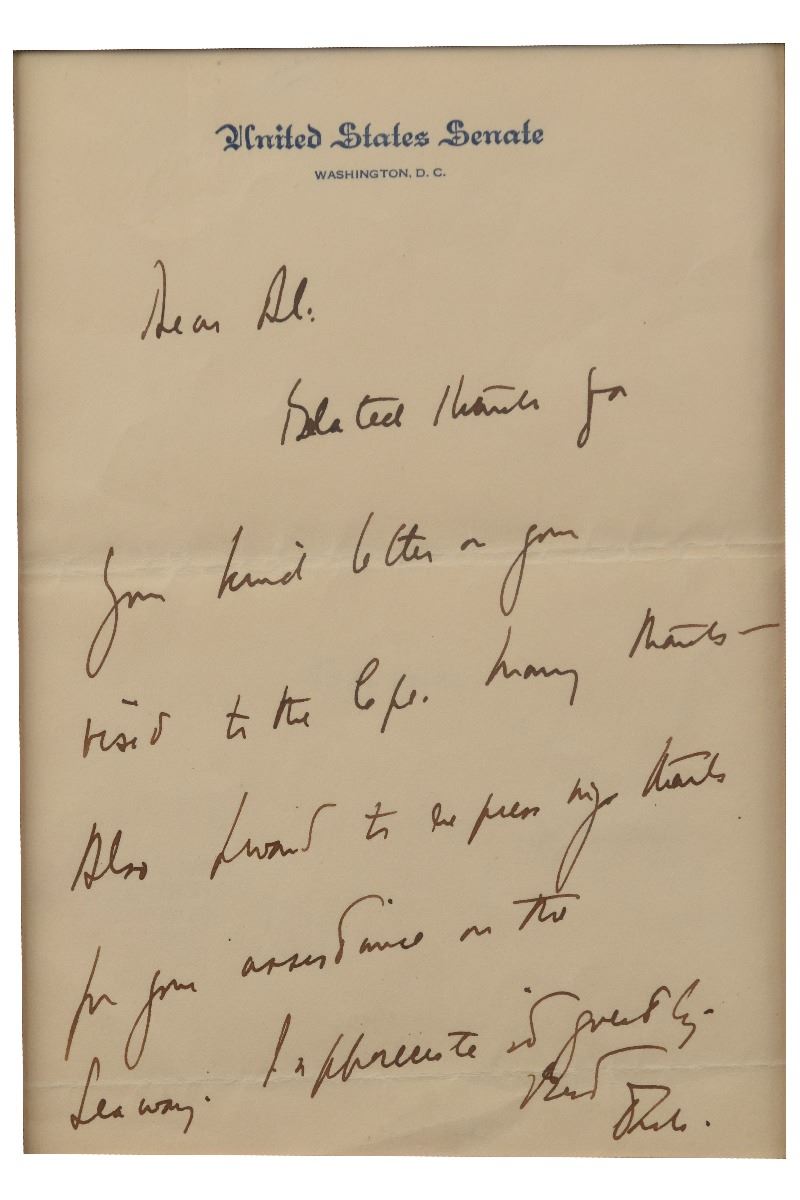 United States Senate
WASHINGTON, D. C.
Dear Al:
Belated thanks for
your kind letter on your
visit to the Cape. Many thanks —
Also I want to express my thanks
for your assistance on the
Seaway. I appreciate it greatly.
Best